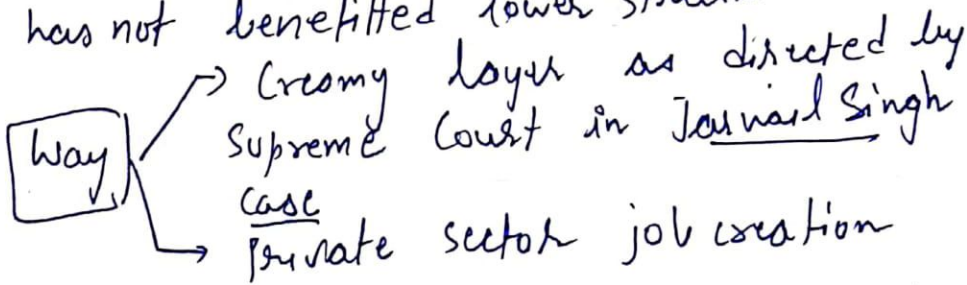 has not benefitted lower
Creamy layer as directed by
Supreme Court in Jarnail Singh
Way
case
Private sector job creation